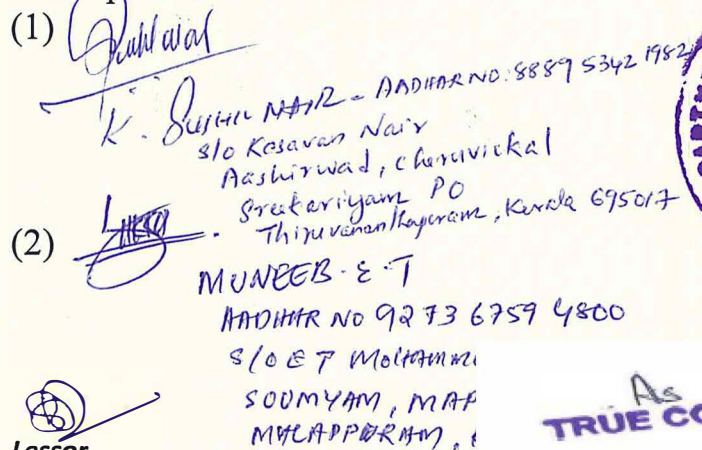 (1)
K. SUSHIL NAIR - AADHAR NO: 8889 5342 1982
S/o Kesavan Nair
Aashirwad, Cheruvickal
Sreekariyam PO
Thiruvananthapuram, Kerala 695017
(2)
MUNEEB · E · T
AADHAR NO 9273 6759 4800
S/O E T MOHAMM
SOUMYAM, MAP
MALAPPURAM,
Lessor
As
TRUE CO